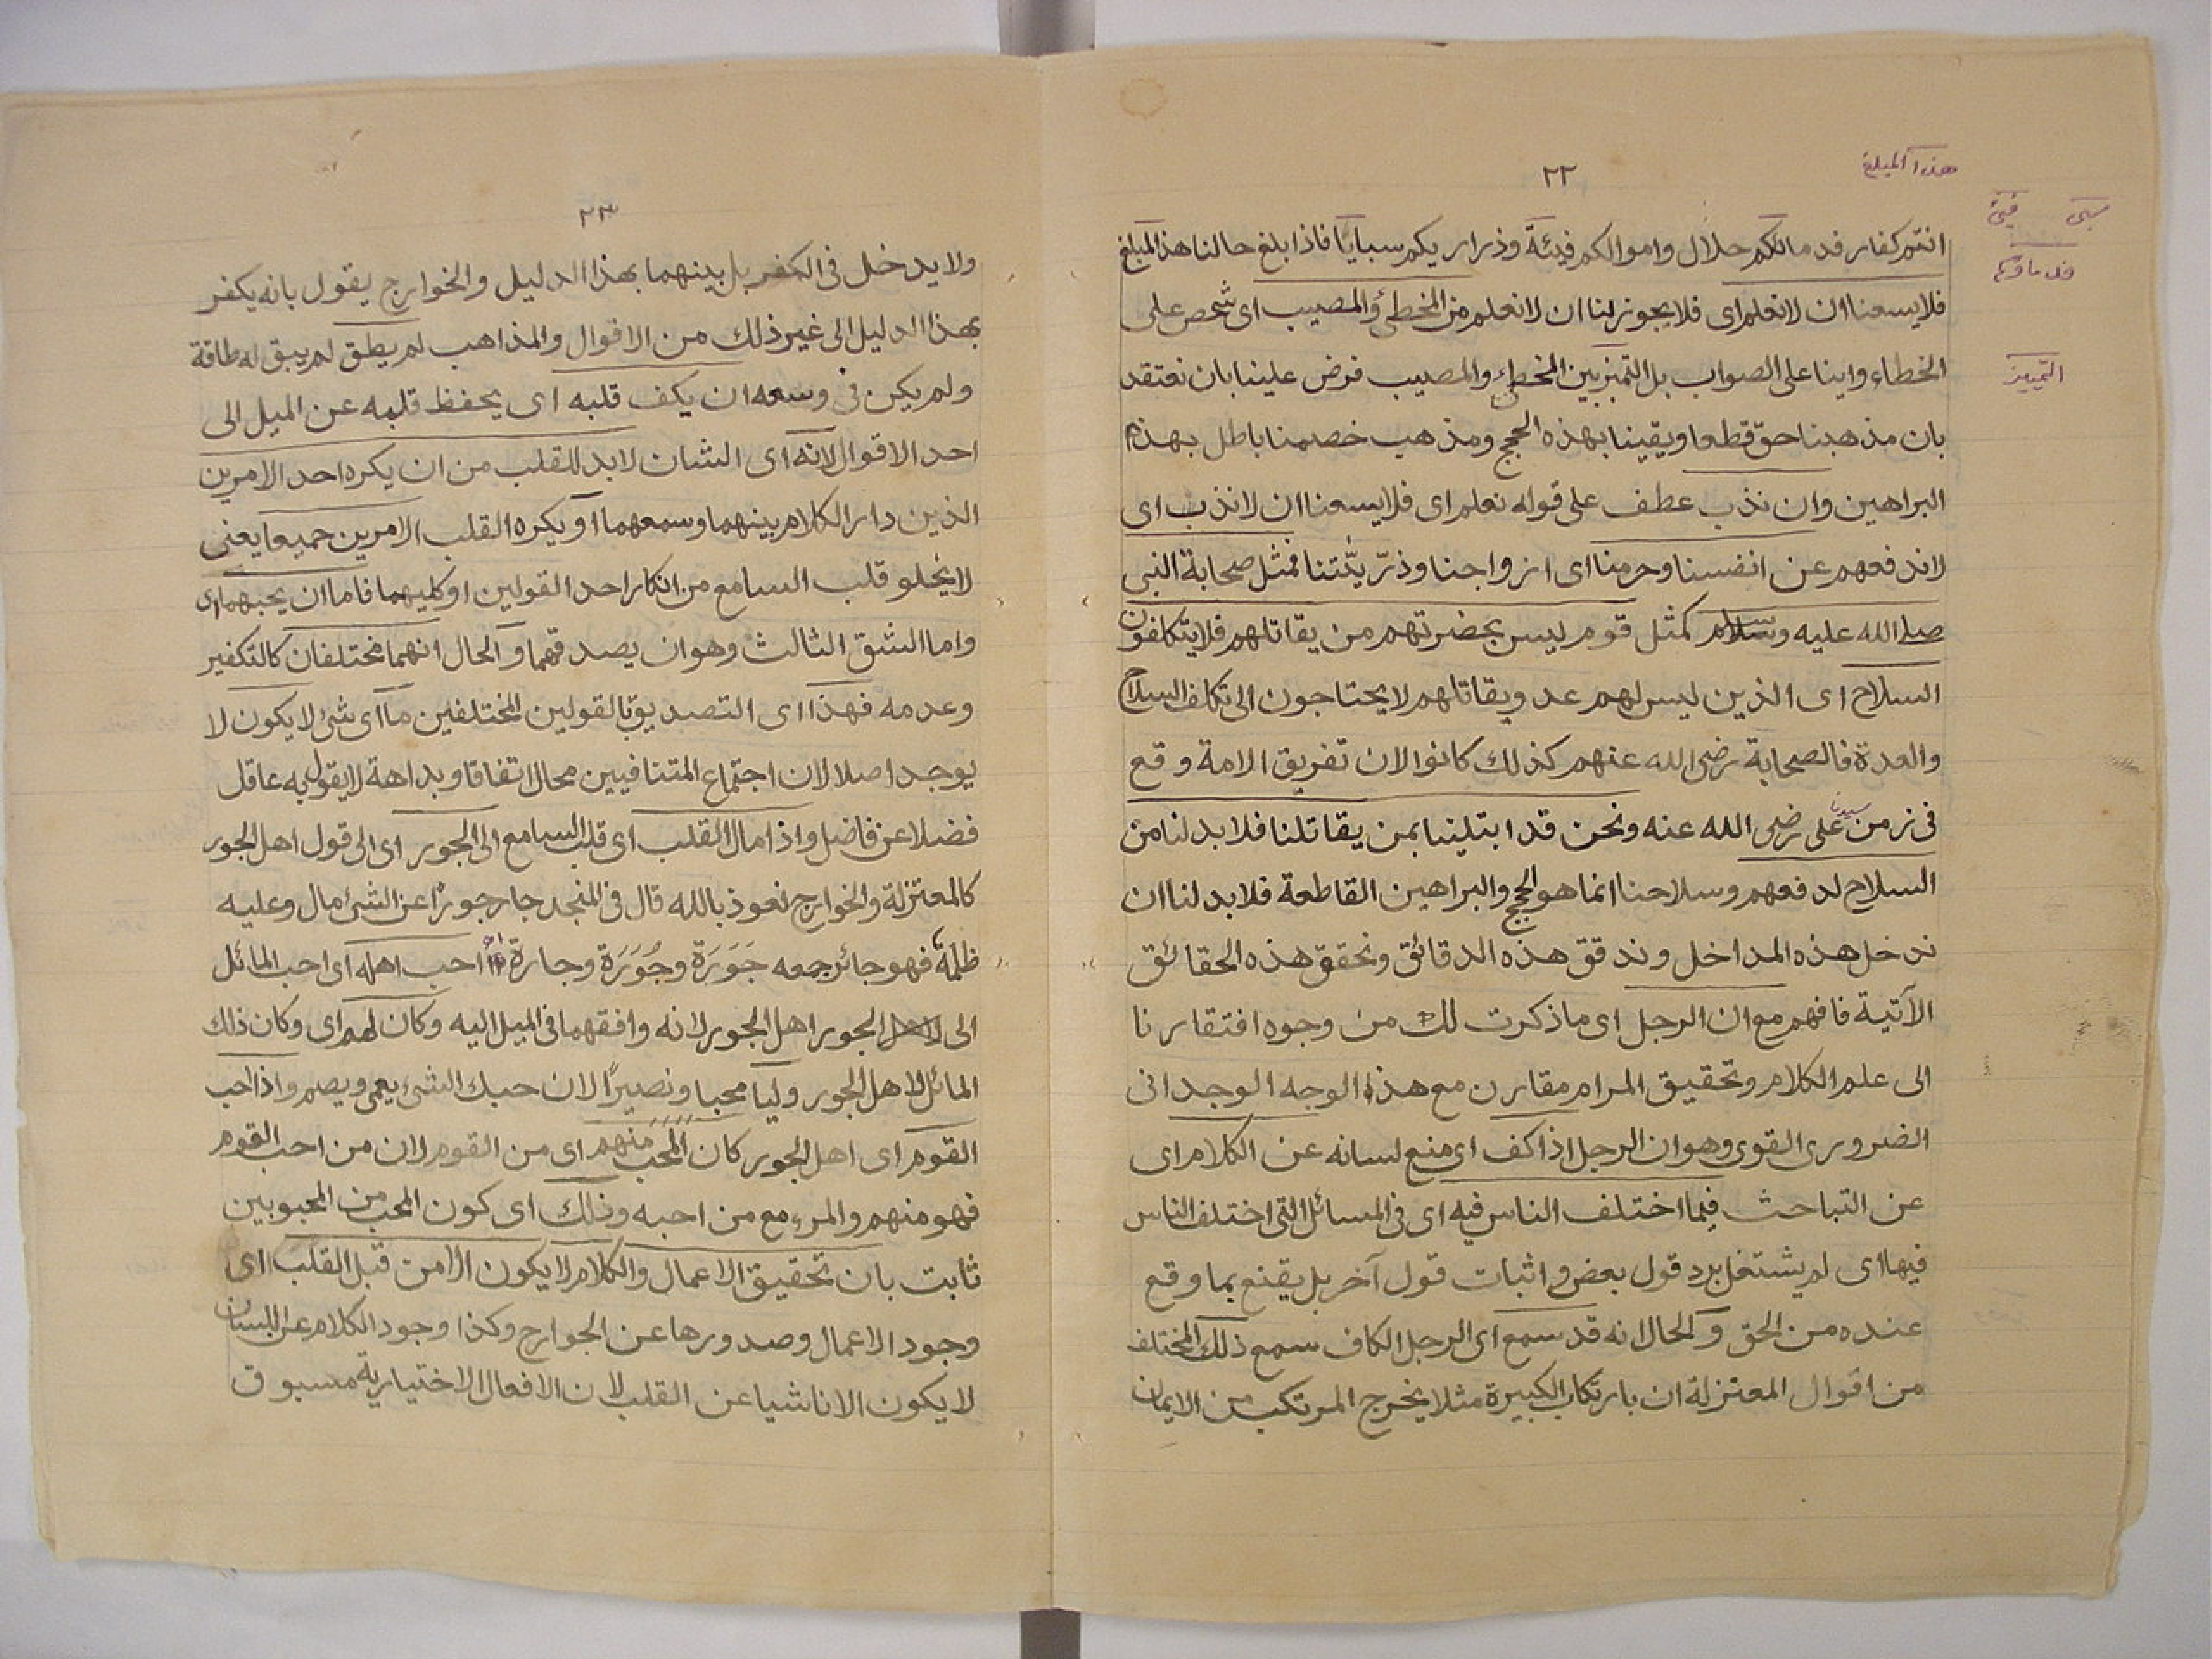 ٢٢
هذا المبلغ
سبی فيئ
فدماؤكم
التمييز
انتم كفار فدمائكم حلال واموالكم فيئة وذراريكم سبايا فاذا بلغ حالنا هذا المبلغ
فلا يسعنا ان لا نعلم اى فلا يجوز لنا ان لا نعلم من المخطئ والمصيب اى شخص على
الخطاء واينا على الصواب بل التميز بين المخطئ والمصيب فرض علينا بان نعتقد
بان مذهبنا حق قطعا ويقينا بهذه الحجج ومذهب خصمنا باطل بهذه
البراهين وان نذب عطف على قوله نعلم اى فلا يسعنا ان لا نذب اى
لا ندفعهم عن انفسنا وحرمنا اى ازواجنا وذرّيّتنا فمثل صحابة النبى
صلى الله عليه وسلام كمثل قوم ليس بحضرتهم من يقاتلهم فلا يتكلفون
السلاح اى الذين ليس لهم عدو يقاتلهم لا يحتاجون الى تكلف السلاح
والعدة فالصحابة رضى الله عنهم كذلك كانوا لان تفريق الامة وقع
فى زمن سيدنا على رضى الله عنه ونحن قد ابتلينا بمن يقاتلنا فلا بد لنا من
السلاح لدفعهم وسلاحنا انما هو الحجج والبراهين القاطعة فلا بد لنا ان
ندخل هذه المداخل وندقق هذه الدقائق ونحقق هذه الحقائق
الآتية فافهم مع ان الرجل اى ما ذكرت لك من وجوه افتقارنا
الى علم الكلام وتحقيق المرام مقارن مع هذا الوجه الوجدانى
الضرورى القوى وهو ان الرجل اذا كف اى منع لسانه عن الكلام اى
عن التباحث فيما اختلف الناس فيه اى فى المسائل التى اختلف الناس
فيها اى لم يشتغل برد قول بعض واثبات قول آخر بل يقنع بما وقع
عنده من الحق و الحال انه قد سمع اى الرجل الكاف سمع ذلك المختلف
من اقوال المعتزلة ان بارتكاب الكبيرة مثلا يخرج المرتكب من الايمان
٢٣
ولا يدخل فى الكفر بل بينهما بهذا الدليل والخوارج يقول بانه يكفر
بهذا الدليل الى غير ذلك من الاقوال والمذاهب لم يطق لم يبق له طاقة
ولم يكن فى وسعه ان يكف قلبه اى يحفظ قلبه عن الميل الى
احد الاقوال لانه اى الشان لا بد للقلب من ان يكره احد الامرين
الذين دار الكلام بينهما وسمعهما او يكره القلب الامرين جميعا يعنى
لا يخلو قلب السامع من انكار احد القولين او كليهما فاما ان يحبهما اى
واما الشق الثالث وهو ان يصدقهما و الحال انهما مختلفان كالتكفير
وعدمه فهذا اى التصديق بالقولين المختلفين مما اى شئ لا يكون لا
يوجد اصلا لان اجتماع المتنافيين محال اتفاقا وبداهة لا يقول به عاقل
فضلا عن فاضل واذا مال القلب اى قلب السامع الى الجور اى الى قول اهل الجور
كالمعتزلة والخوارج نعوذ بالله قال فى المنجد جار جورًا عن الشئ مال وعليه
ظلمه فهو جائر جمعه جَوَرَة وجُوَرَة وجارة احب اهله اى احب المائل
الى الجور اهل الجور لانه وافقهما فى الميل اليه وكان لهم اى وكان ذلك
المائل لاهل الجور وليا محبا ونصيرًا لان حبك الشئ يعمى ويصم واذا احب
القوم اى اهل الجور كان المحب منهم اى من القوم لان من احب القوم
فهو منهم والمرء مع من احبه وذلك اى كون المحب من المحبوبين
ثابت بان تحقيق الاعمال والكلام لا يكون الا من قبل القلب اى
وجود الاعمال وصدورها عن الجوارح وكذا وجود الكلام عن اللسان
لا يكون الا ناشيا عن القلب لان الافعال الاختيارية مسبوق